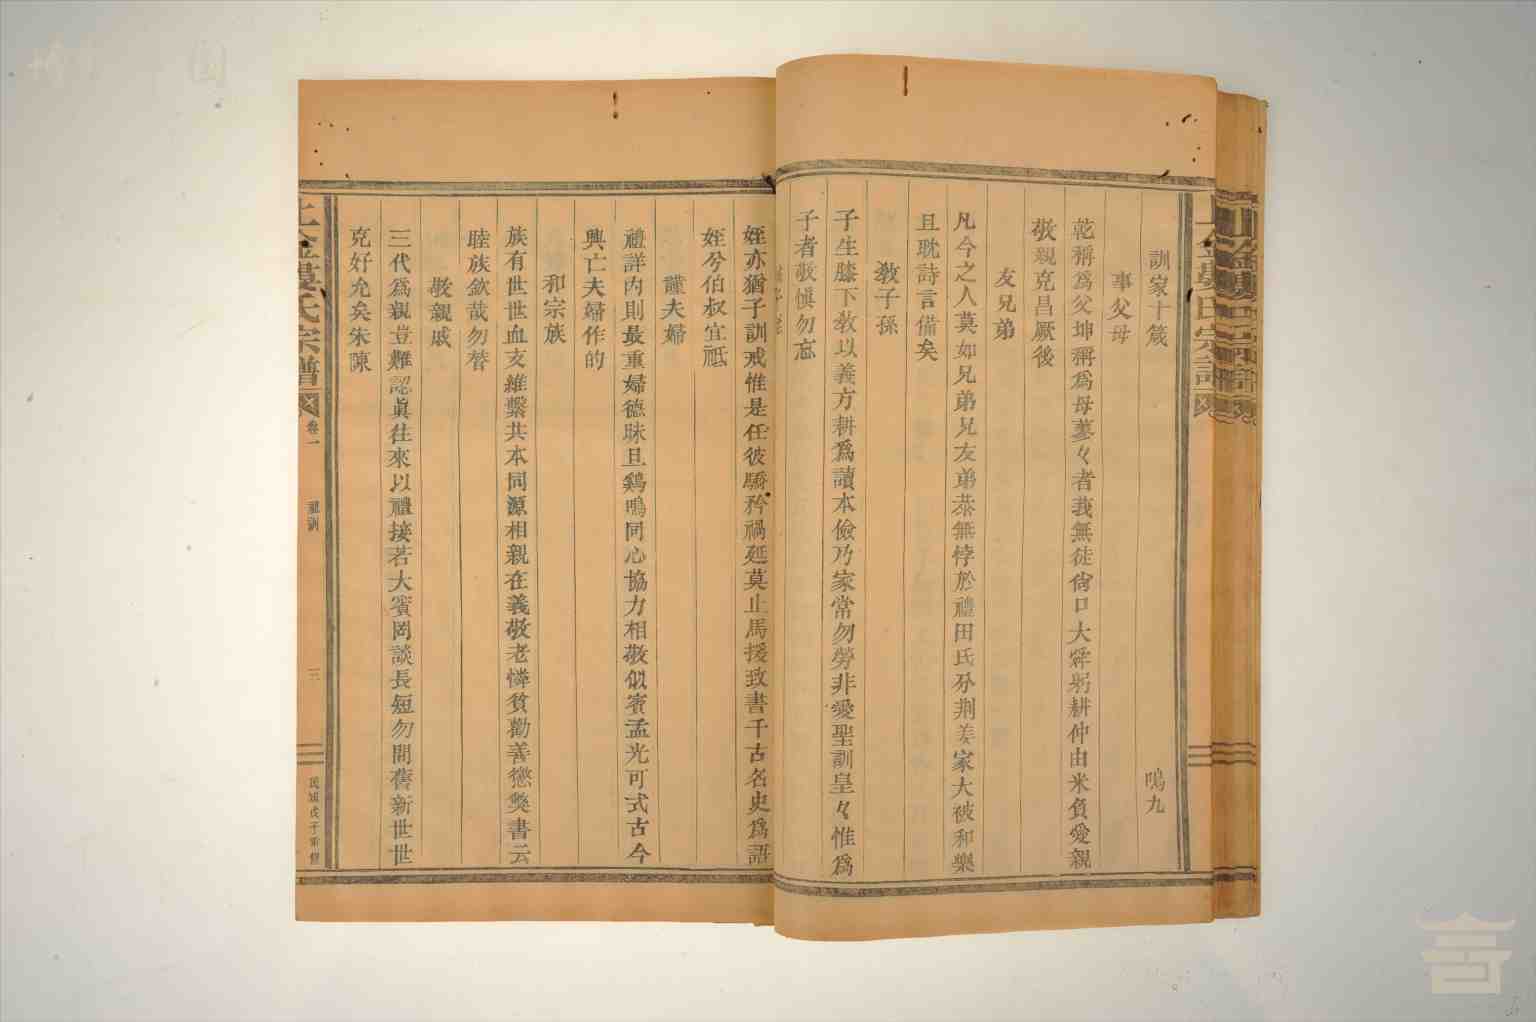 訓家十箴　鳴九
事父母
乾稱爲父坤稱爲母蓼々者莪無徒尙口大舜躬耕仲由米負愛親
敬親克昌厥後
友兄弟
凡今之人莫如兄弟兄友弟恭無悖於禮田氏分荆姜家大被和樂
且耽詩言備矣
敎子孫
子生膝下敎以義方耕爲讀本儉乃家常勿勞非愛聖訓皇々惟爲
子者敬愼勿忘
姪亦猶子訓戒惟是任彼驕矜禍延莫止馬援致書千古名史爲語
姪兮伯叔宜祗
謹夫婦
禮詳內則最重婦德昧旦鷄鳴同心協力相敬似賓孟光可式古今
興亡夫婦作的
和宗族
族有世世血支維繫共本同源相親在義敬老憐貧勸善懲獘書云
睦族欽哉勿替
敬親戚
三代爲親豈難認眞往來以禮接若大賓罔談長短勿間舊新世世
克好允矣朱陳
上金婁氏宗譜
卷一
禮訓
三
民國戊子重修